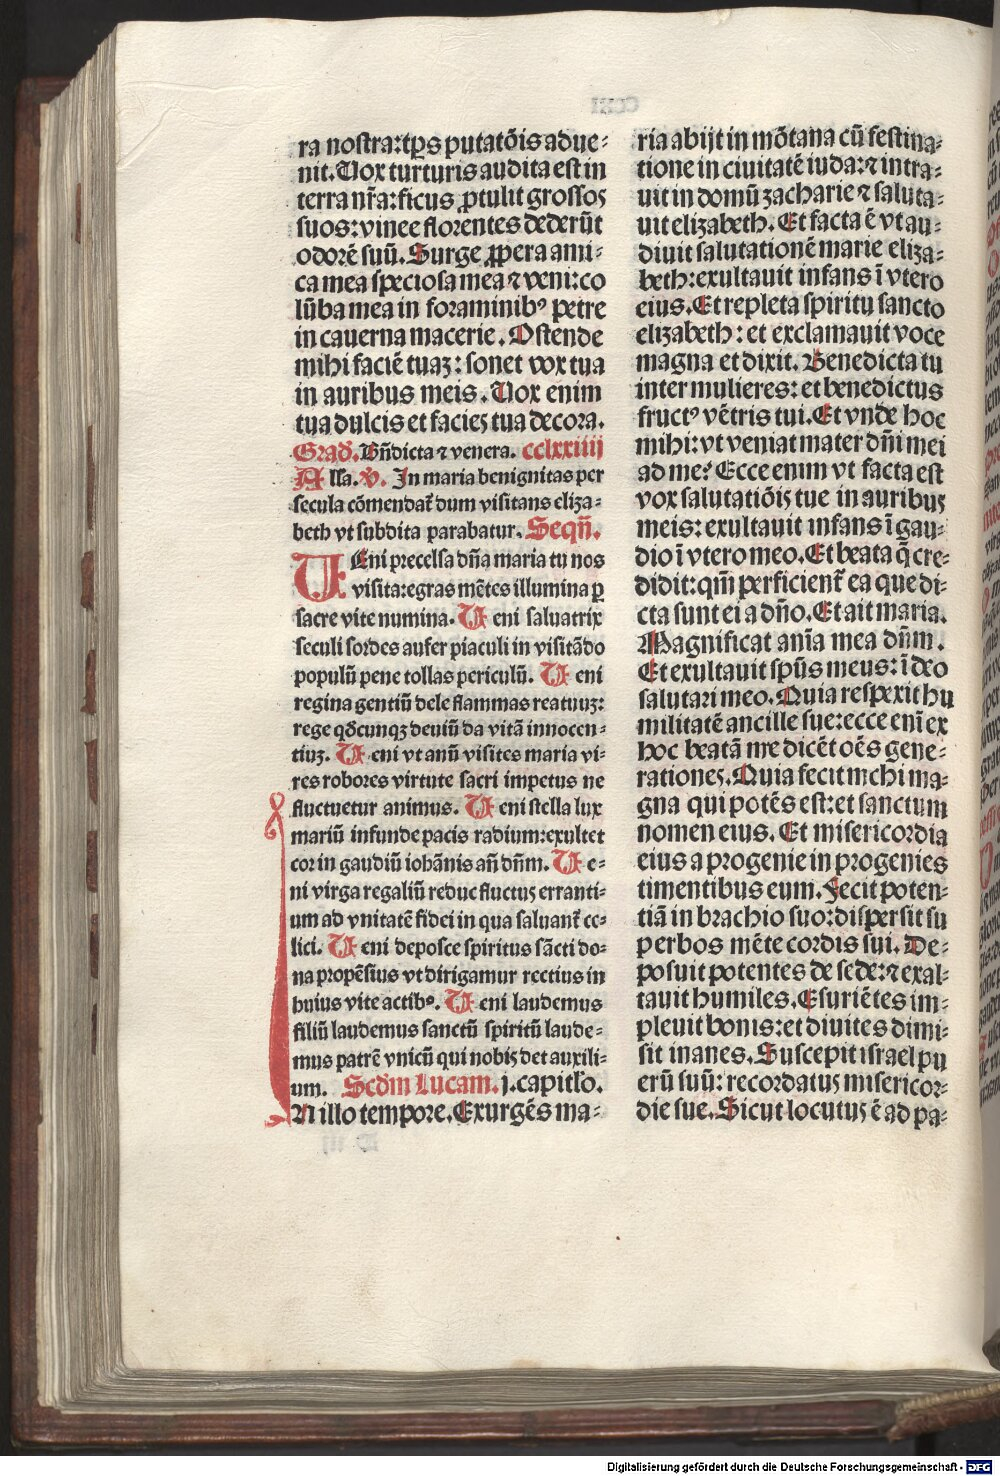 ra nostra:tp̄s putatōis adue⸗
nit. Uox turturis audita est in
terra nr̄a: ficus ꝓtulit grossos
suos: vinee florentes dederūt
odorē suū. Surge ꝓpera ami⸗
ca mea speciosa mea ⁊ veni: co
lūba mea in foraminibꝰ petre
in cauerna macerie. Ostende
mihi faciē tuaꝫ: sonet vox tua
in auribus meis. Uox enim
tua dulcis et facieς tua decora.
Grad̄. Bn̄dicta ⁊ venera. cclxxiiij
Alla. v̄. In maria benignitas per
secula cōmendat̄ dum visitans eliza⸗
beth vt subdita parabatur. Seqn̄.
UEni precelsa dn̄a maria tu nos
visita: egras mētes illumina ꝑ
sacre vite numina. Ueni saluatrix
seculi sordes aufer piaculi in visitādo
populū pene tollas periculū. Ueni
regina gentiū dele flammas reatuuꝫ:
rege qd̄cunqꝫ deuiū da vitā innocen⸗
tiuꝫ. Ueni vt anū visites maria vi⸗
res robores virtute sacri impetus ne
fluctuetur animus. Ueni stella lux
mariū infunde pacis radium: exultet
cor in gaudiū iohānis an̄ dn̄m. Ue⸗
ni virga regaliū reduc fluctuς erranti⸗
um ad vnitatē fidei in qua saluant̄ ce⸗
lici. Ueni deposce spiritus sācti do⸗
na propēsius vt dirigamur rectius in
huius vite actibꝰ. Ueni laudemus
filiū laudemus sanctū spiritū laude⸗
mus patrē vnicū qui nobiς det auxili⸗
um. Scd̄m Lucam. j. capitl̓o.
In illo tempore. Exurgēs ma⸗
ria abijt in mōtana cū festina⸗
tione in ciuitatē iuda: ⁊ intra⸗
uit in domū zacharie ⁊ saluta⸗
uit elizabeth. Et facta ē vt au⸗
diuit salutationē marie eliza⸗
beth: exultauit infans ī vtero
eius. Et repleta spiritu sancto
elizabeth: et exclamauit voce
magna et dixit. Benedicta tu
inter mulieres: et benedictus
fructꝰ vētris tui. Et vnde hoc
mihi: vt veniat mater dn̄i mei
ad me? Ecce enim vt facta est
vox salutatiōiς tue in auribuς
meis: exultauit infans ī gau⸗
dio ī vtero meo. Et beata q̄ cre⸗
didit: qm̄ perficient̄ ea que di⸗
cta sunt ei a dn̄o. Et ait maria.
Magnificat anīa mea dn̄m.
Et exultauit sp̄us meus: ī deo
salutari meo. Quia respexit hu
militatē ancille sue: ecce enī ex
hoc beatā me dicēt oēs gene⸗
rationeς. Quia fecit mchi ma⸗
gna qui potēs est: et sanctum
nomen eius. Et misericordia
eius a progenie in progenies
timentibus eum. Fecit poten⸗
tiā in brachio suo: dispersit su
perbos mēte cordis sui. De⸗
posuit potentes de sede: ⁊ exal⸗
tauit humiles. Esuriētes im⸗
pleuit bonis: et diuites dimi⸗
sit inanes. Suscepit israel pu
erū suū: recordatuς misericor⸗
die sue. Sicut locutuς ē ad pa⸗
Digitalisierung gefördert durch die Deutsche Forschungsgemeinschaft - DFG